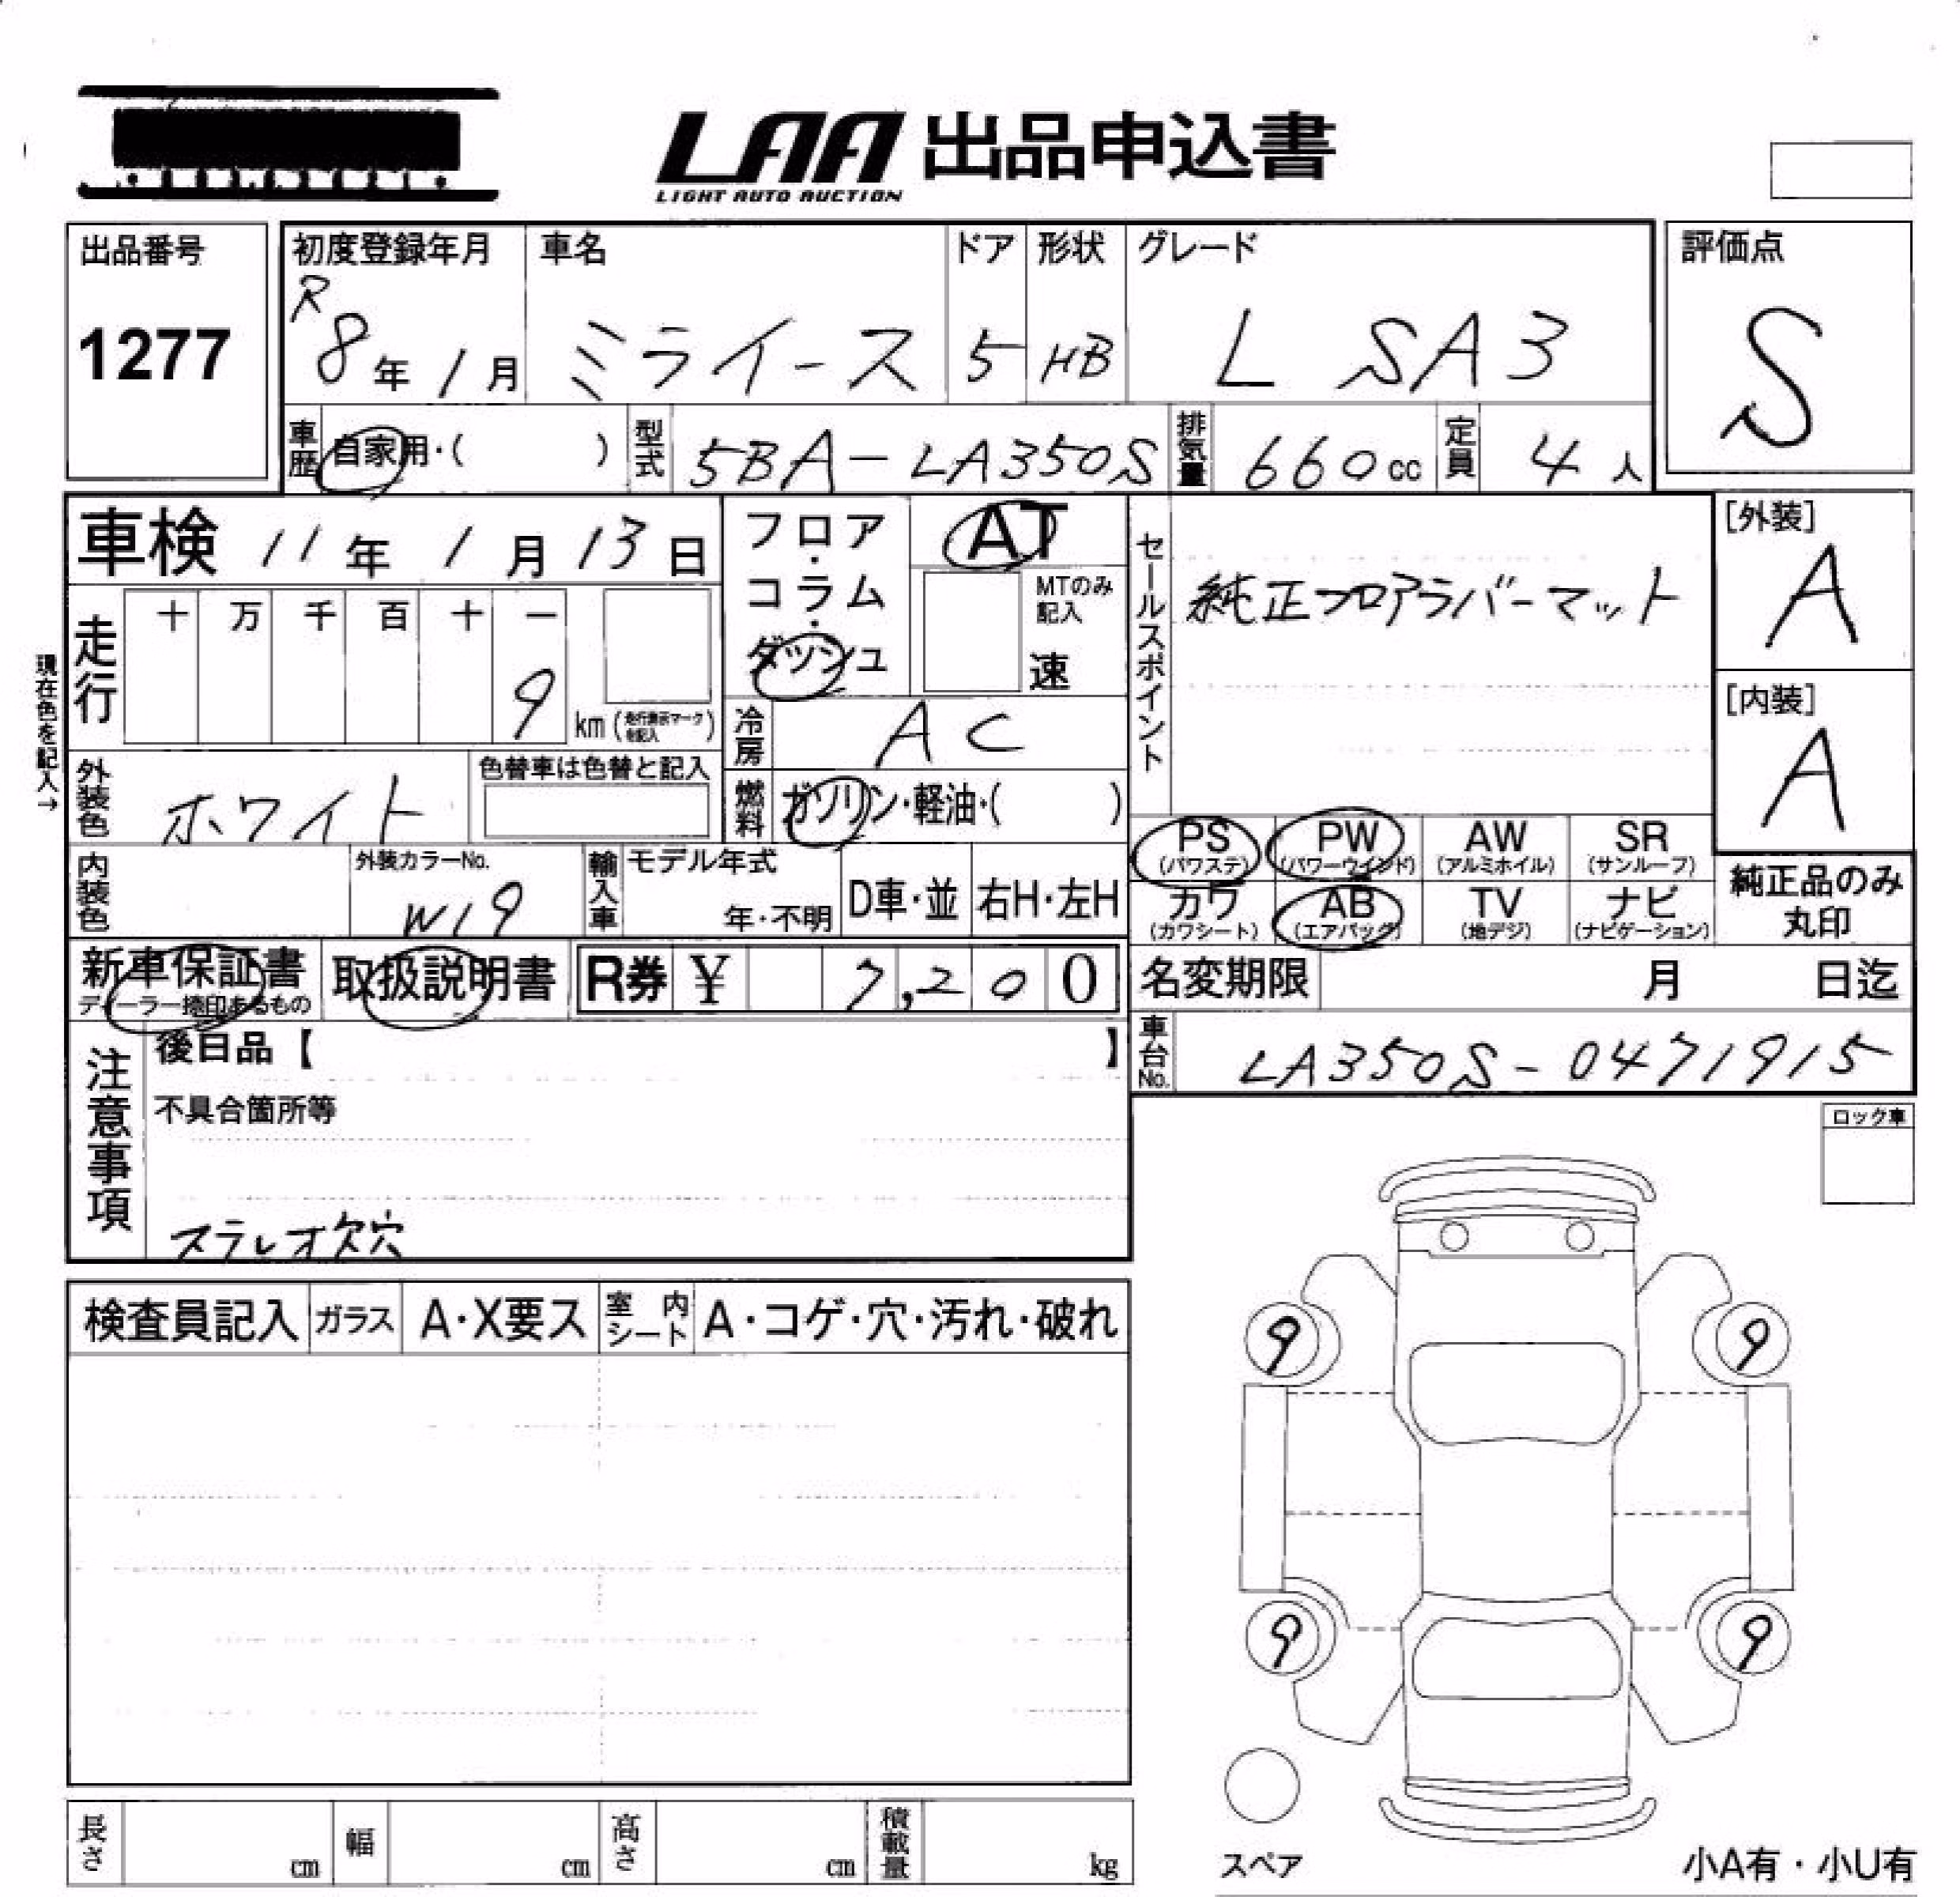 LAA 出品申込書
LIGHT AUTO AUCTION
出品番号
1277
初度登録年月
R8年1月
車名
ミライース
ドア
5
形状
HB
グレード
L SA3
評価点
S
車歴
自家用・( )
型式
5BA-LA350S
排気量
660cc
定員
4人
車検 11年1月13日
フロア・コラム・ダッシュ
AT
MTのみ記入
速
セールスポイント
純正フロアラバーマット
[外装]
A
[内装]
A
現在色を記入→
走行
十 万 千 百 十 一
9
km(走行表示マークを記入)
冷房
AC
外装色
ホワイト
色替車は色替と記入
燃料
ガソリン・軽油・( )
PS (パワステ)
PW (パワーウインド)
AW (アルミホイル)
SR (サンルーフ)
カワ (カワシート)
AB (エアバック)
TV (地デジ)
ナビ (ナビゲーション)
純正品のみ丸印
内装色
外装カラーNo.
W19
輸入車
モデル年式
年・不明
D車・並
右H・左H
新車保証書
ディーラー捺印あるもの
取扱説明書
R券 ¥ 7,200
名変期限 月 日迄
車台No.
LA350S-0471915
注意事項
後日品【 】
不具合箇所等
ステレオ欠穴
ロック車
検査員記入
ガラス
A・X要ス
室内シート
A・コゲ・穴・汚れ・破れ
9 9
9 9
スペア
小A有・小U有
長さ cm
幅 cm
高さ cm
積載量 kg